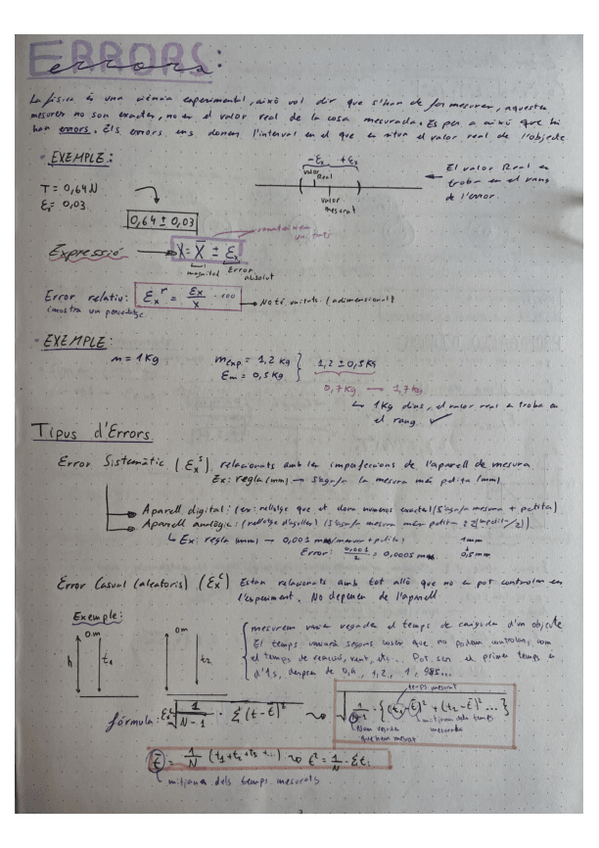 ERRORS:
errors
La física és una ciència experimental, això vol dir que s'han de fer mesures, aquestes
mesures no son exactes, no es el valor real de la cosa mesurada. Es per a això que hi
han errors. Els errors ens donen l'interval en el que es situa el valor real de l'objecte
· EXEMPLE:
-Ex +Ex
valor Real
valor mesurat
El valor Real es
troba en el rang
de l'error.
T = 0,64N
Ex= 0,03
0,64 ± 0,03
Expressió
X = X̄ ± Ex
magnitud
Error absolut
Error relatiu: Ex^r = Ex/x · 100
No té unitats. (adimensional)
(mostra un percentatge
· EXEMPLE:
m = 1Kg
mexp = 1,2 Kg
Em = 0,5Kg
1,2 ± 0,5Kg
0,7Kg → 1,7Kg
↳ 1Kg dins, el valor real es troba en
el rang. ✓
Tipus d'Errors
Error Sistemàtic (Ex^s), relacionats amb les imperfeccions de l'aparell de mesura.
Ex: regla (mm) → S'agafa la mesura més petita (mm)
Aparell digital: (ex: rellotge que et dona numeros exactes (S'agafa mesura + petita)
Aparell analògic: (rellotge d'agulles) (S'agafa mesura més petita ÷ 2
↳ Ex: regla (mm) → 0,001
1mm
Error: 0,001/2 = 0,0005
0,5mm
Error Casual (aleatoris) (Ex^c) Estan relacionats amb tot allò que no es pot controlar en
l'experiment. No depenen de l'aparell
Exemple:
0m
h
t1
0m
t2
mesurem varies vegades el temps de caiguda d'un objecte
El temps variarà segons coses que no podem controlar, com
el temps de reacció, vent, etc... Pot ser el primer temps és
d'1s, despres de 0,9, 1,2, 1, 985...
fórmula: Ex^c √ 1/N-1 · Σ (t-t̄)²
temps mesurat
√ 1/N-1 · {(t1-t̄)² + (t2-t̄)² ...}
Num vegades
que hem mesurat
mitjana dels temps
mesurats
t̄ = 1/N (t1+t2+t3+...) t̄ = 1/N · Σti
mitjana dels temps mesurats